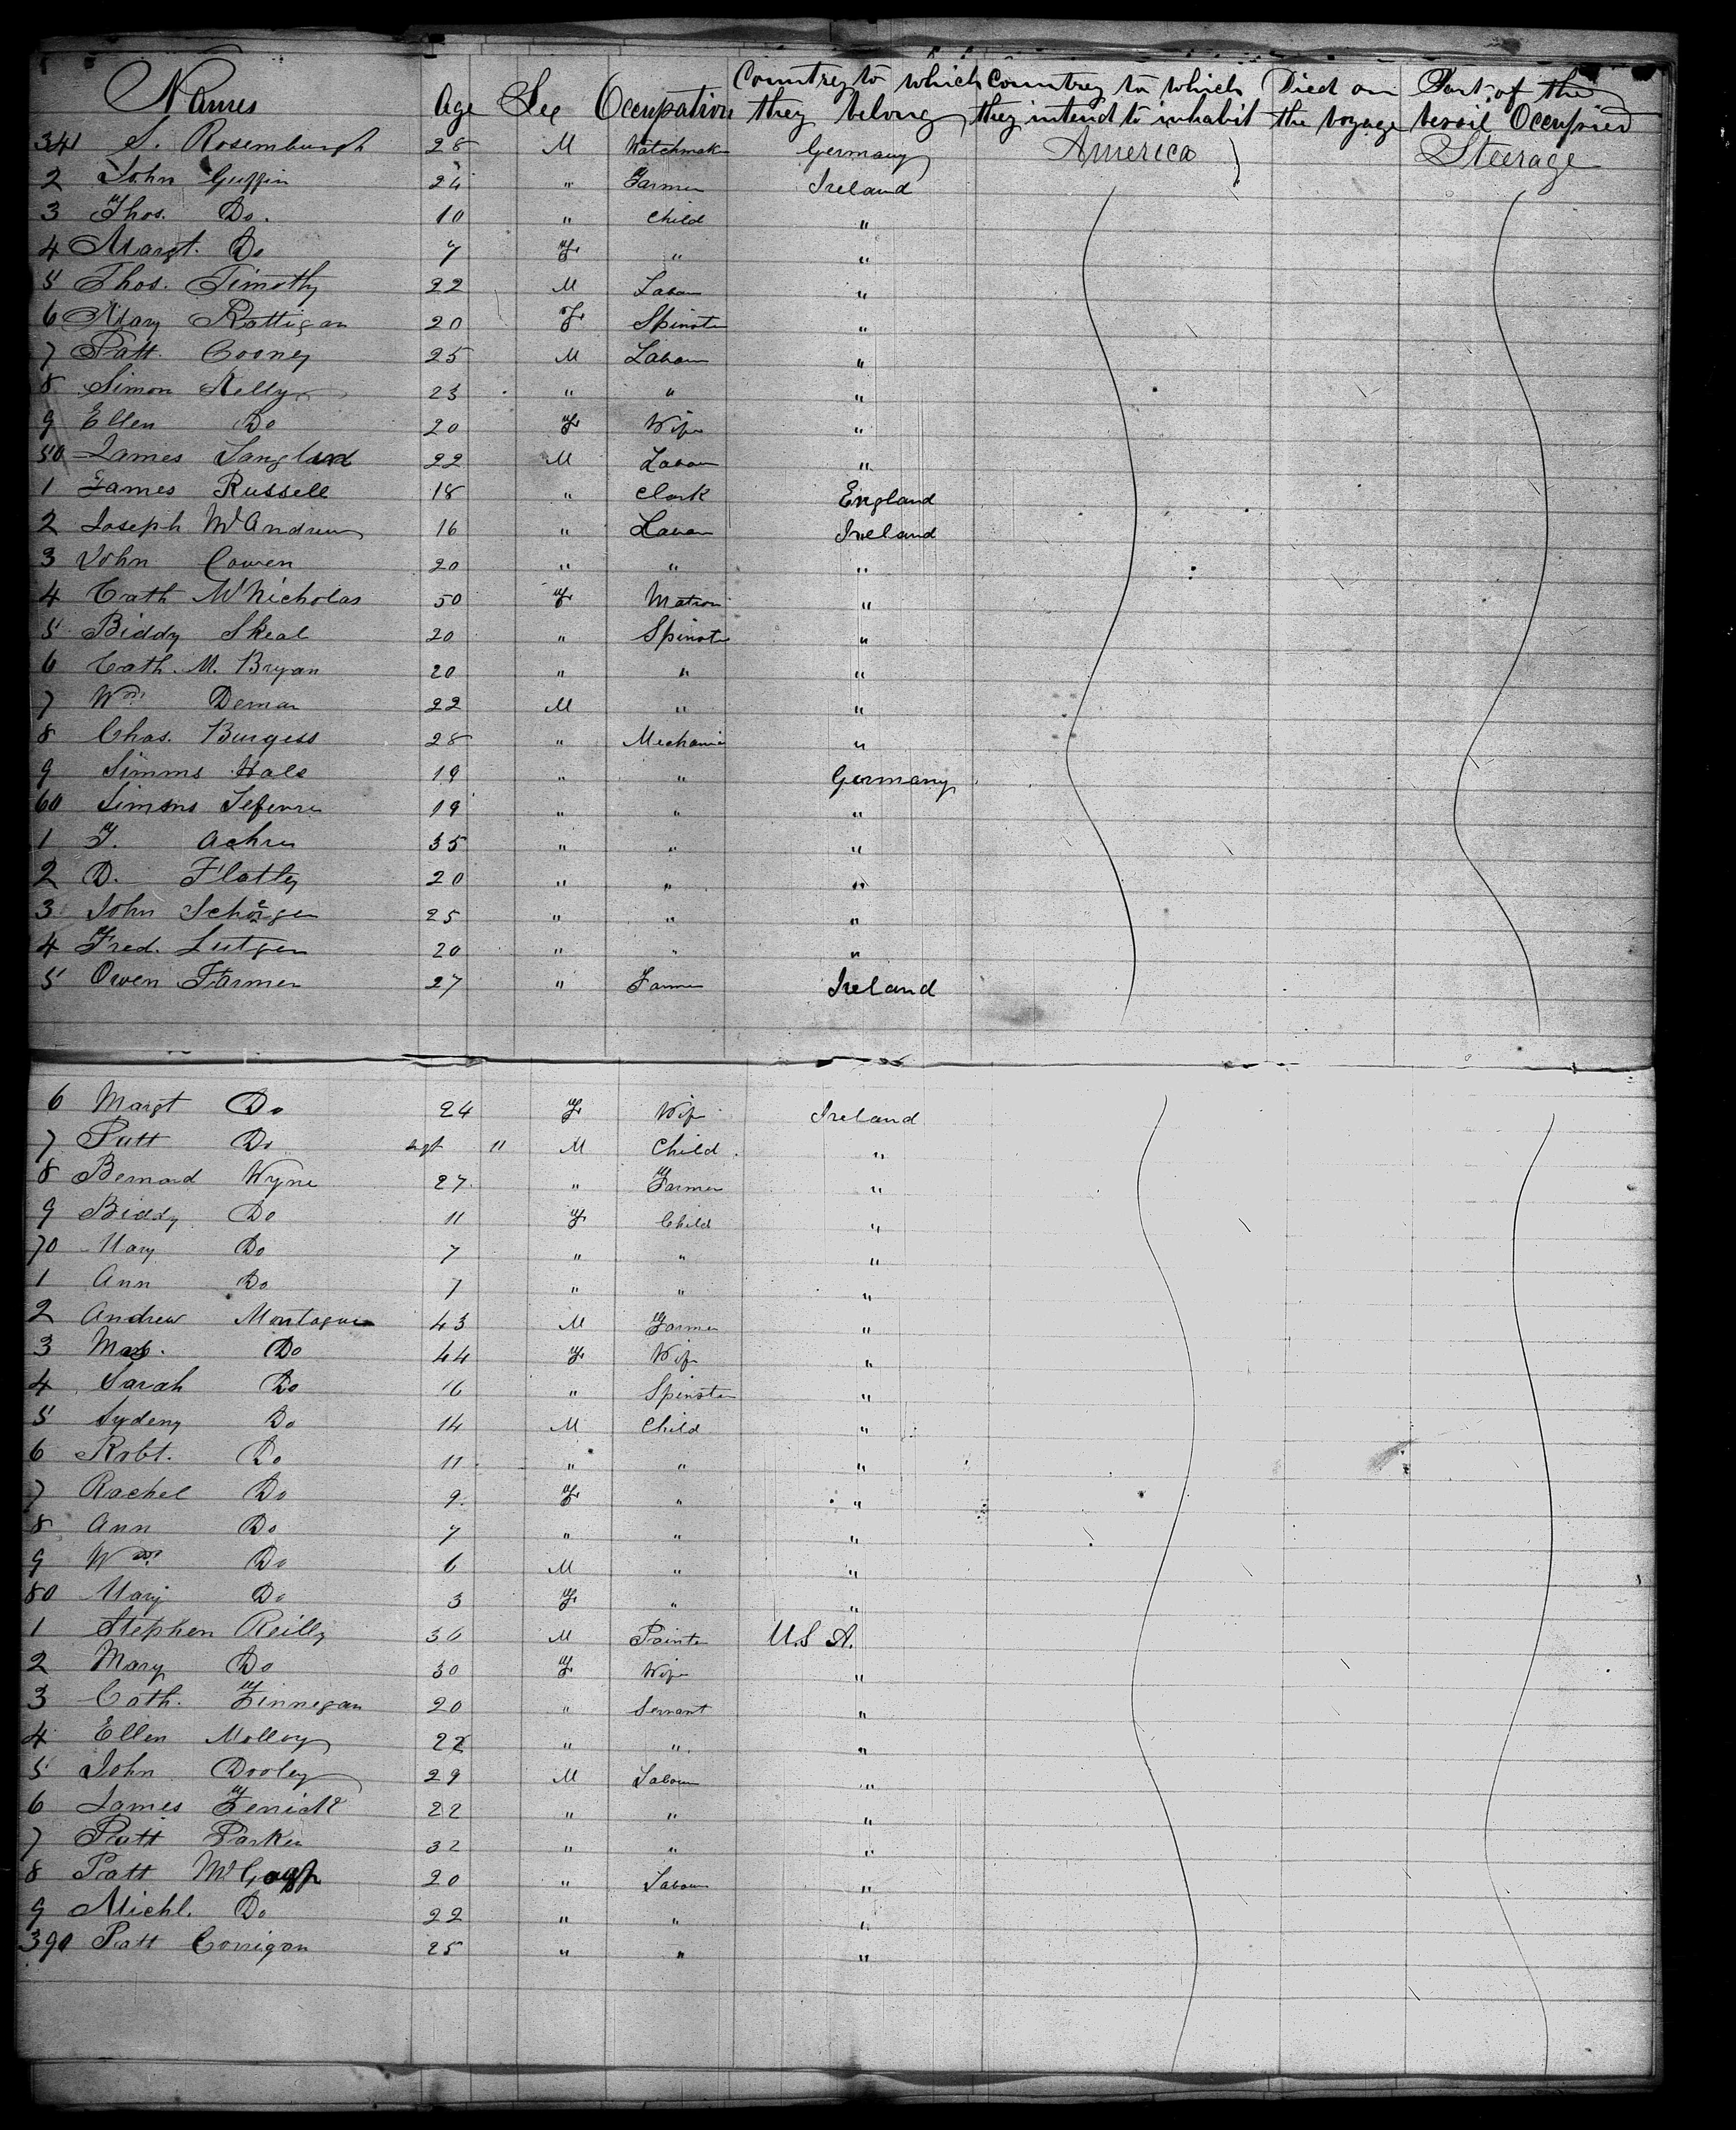 Names Age Sex Occupation Country to which they belong Country to which they intend to inhabit Died on the voyage Part of the vessil Occupied
341 S. Rosemburgh 28 M Watchmak Germany America Steerage
2 John Guffin 24 " Farmer Ireland
3 Thos. Do. 10 " Child "
4 Margt. Do 7 F " "
5 Thos. Timothy 22 M Labour "
6 Mary Rattigan 20 F Spinster "
7 Patt. Cooney 25 M Labour "
8 Simon Kelly 23 " " "
9 Ellen Do 20 F Wife "
50 James Langland 22 M Labour "
1 James Russell 18 " Clark England
2 Joseph McAndrew 16 " Labour Ireland
3 John Cowen 20 " " "
4 Cath McNicholas 50 F Matron "
5 Biddy Skeal 20 " Spinster "
6 Cath. M. Bryan 20 " " "
7 Wm. Deman 22 M " "
8 Chas. Burgess 28 " Mechanic "
9 Simms Hale 19 " " Germany
60 Simms Lefevre 19 " " "
1 F. 35 " " "
2 D. Flatly 20 " " "
3 John 25 " " "
4 Fred. Lutgen 20 " " "
5 Owen Farmer 27 " Farmer Ireland
6 Margt Do 24 F Wife Ireland
7 Patt Do " M Child "
8 Bernard Wyne 27 " Farmer "
9 Biddy Do 11 F Child "
70 Mary Do 7 " " "
1 Ann Do 7 " " "
2 Andrew Montague 43 M Farmer "
3 Do 44 F Wife "
4 Sarah Do 16 " Spinster "
5 Sydeny Do 14 M Child "
6 Robt. Do 11 " " "
7 Rachel Do 9 F " "
8 Ann Do 7 " " "
9 Wm. Do 6 M " "
80 Mary Do 3 F " "
1 Stephen Reilly 36 M Painter U.S A.
2 Mary Do 30 F Wife "
3 Cath. Finnegan 20 " Servant "
4 Ellen Molloy 22 " " "
5 John Dooley 29 M Labour "
6 James Fenick 22 " " "
7 Patt Parker 32 " " "
8 Patt 20 " Labour "
9 Michl. Do 22 " " "
390 Patt Corrigan 25 " " "